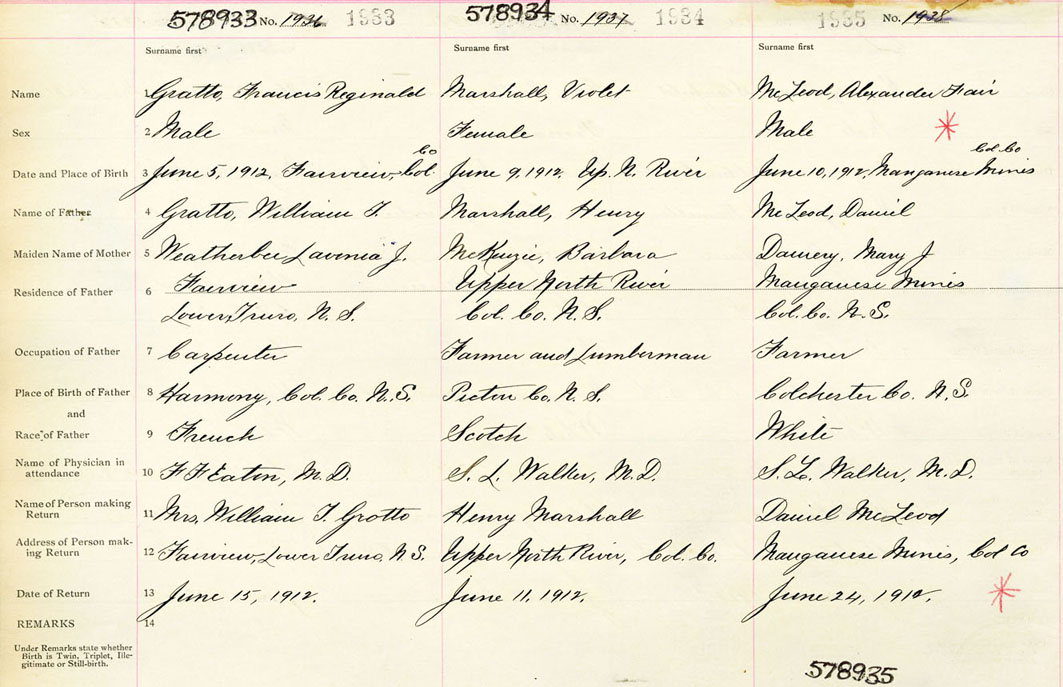 578933 No. 1936 1933 578934 No. 1937 1934 1935 No. 1938
Surname first Surname first Surname first
Name 1 Gratto, Francis Reginald Marshall, Violet McLeod, Alexander Fair
Sex 2 Male Female Male
Co Col. Co
Date and Place of Birth 3 June 5, 1912, Fairview, Col. June 9, 1912. Up. N. River June 10, 1912, Manganese Mines
Name of Father 4 Gratto, William T. Marshall, Henry McLeod, Daniel
Maiden Name of Mother 5 Weatherbee Lavinia J. McKenzie, Barbara Mary J
Residence of Father 6 Fairview Upper North River Manganese Mines
Lower Truro, N. S. Col. Co. N. S. Col. Co. N. S.
Occupation of Father 7 Carpenter Farmer and Lumberman Farmer
Place of Birth of Father 8 Harmony, Col. Co. N. S. Pictou Co. N. S. Colchester Co. N. S.
and
Race of Father 9 French Scotch White
Name of Physician in attendance 10 F F Eaton, M. D. S. L. Walker, M. D. S. L. Walker, M. D.
Name of Person making Return 11 Mrs. William T. Grotto Henry Marshall Daniel McLeod
Address of Person mak-
ing Return 12 Fairview, Lower Truro, N. S. Upper North River, Col. Co. Manganese Mines, Col Co
Date of Return 13 June 15, 1912. June 11, 1912. June 24, 1912.
REMARKS 14
Under Remarks state whether
Birth is Twin, Triplet, Ille-
gitimate or Still-birth.
578935